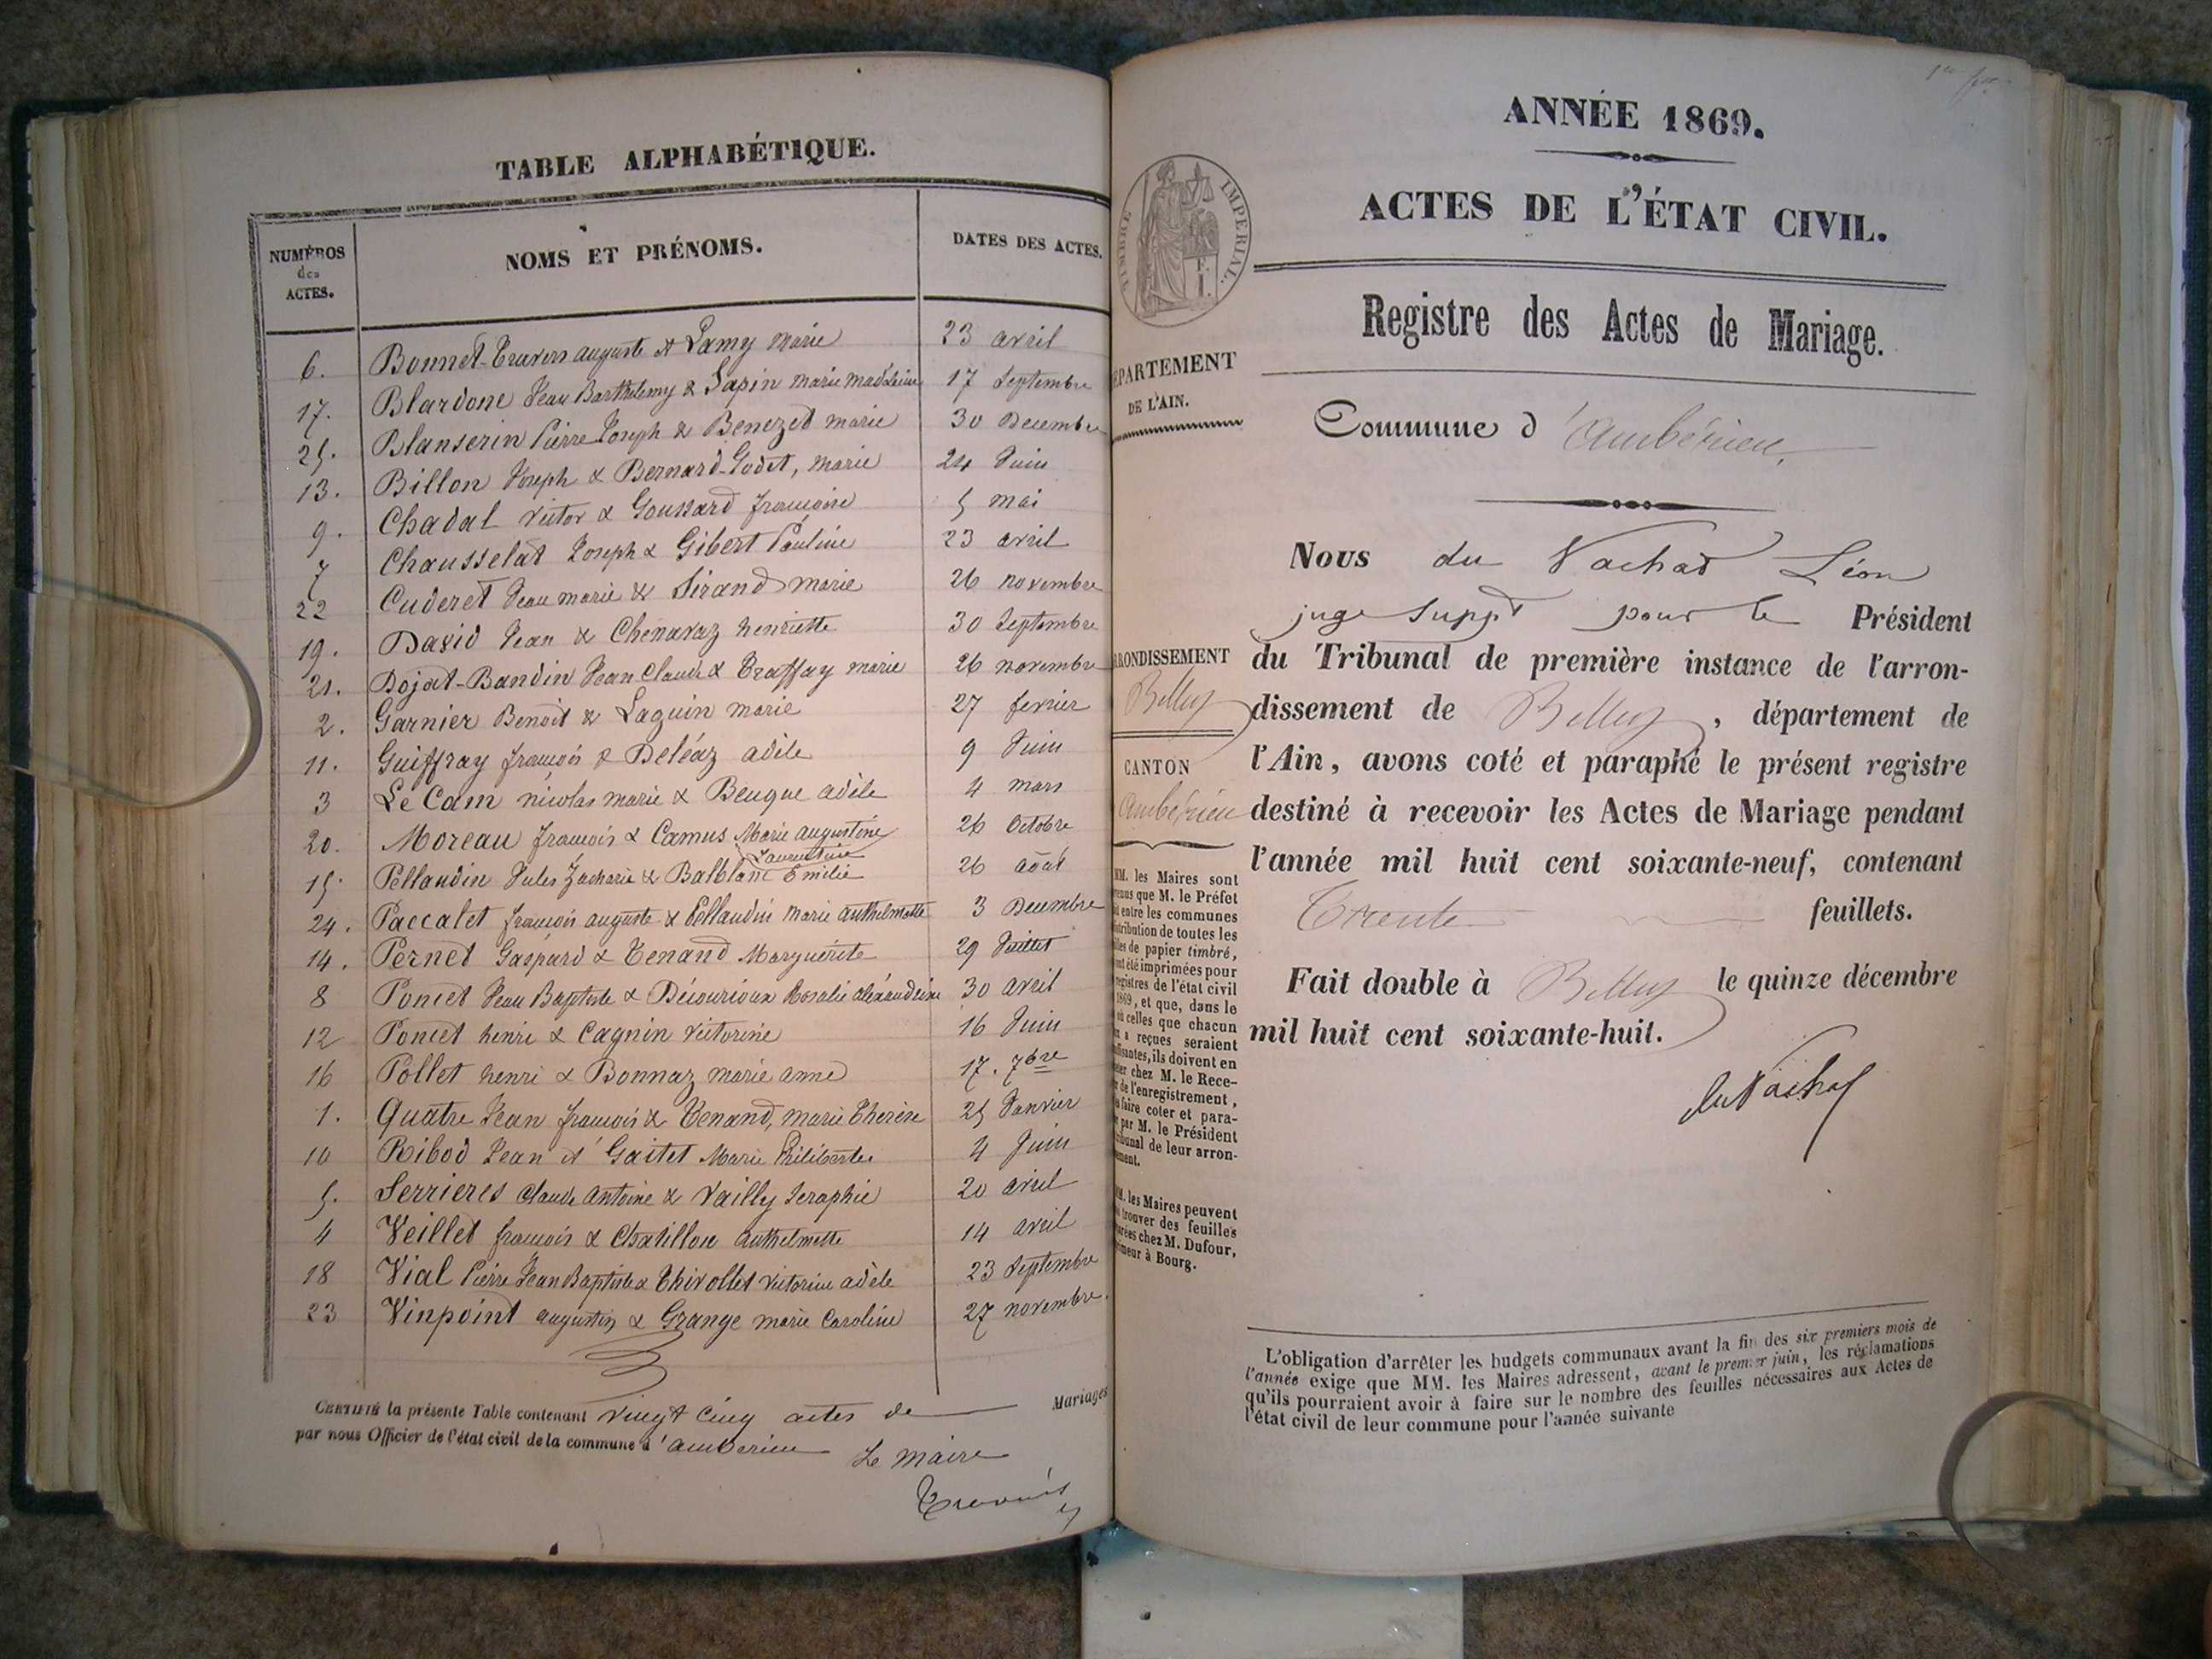 TABLE ALPHABÉTIQUE.
NUMÉROS des ACTES. NOMS ET PRÉNOMS. DATES DES ACTES.
6. Bonnet-Travers auguste et Lamy Marie 23 avril
17. Blardone Jean Barthelemy & Sapin marie madeleine 17 Septembre
25. Blanserin Pierre Joseph & Benezet marie 30 Decembre
13. Billon Joseph & Bernard-Godet, marie 24 Juin
9. Chadal victor & Goussard francoise 5 mai
7 Chausselat Joseph & Gibert Pauline 23 avril
22 Cuderet Jean marie & Sirand marie 26 novembre
19. David Jean & Chenavaz henriette 30 Septembre
21. Dojat-Bandin Jean Claude & Traffay marie 26 novembre
2. Garnier Benoit & Laguin marie 27 fevrier
11. Guiffray françois & Deléaz adèle 9 Juin
3 Le Cam nicolas marie & Beuque adèle 4 mars
20. Moreau françois & Camus Marie augustine 26 Octobre
Laurentine
15. Pellaudin Jules Zacharie & Balblanc Emilie 26 août
24. Paccalet françois auguste & Pellaudin Marie anthelmette 3 Decembre
14. Pernet Gaspard & Tenand Marguerite 29 Juillet
8 Poncet Jean Baptiste & Décourioux Rosalie aléxandrine 30 avril
12 Poncet henri & Cagnin victorine 16 Juin
16 Pollet henri & Bonnaz marie anne 17. 7bre
1. Quatre Jean françois & Tenand, marie Thérèse 25 Janvier
10 Ribod Jean et Gaitet Marie Philiberte 4 Juin
5. Serrieres Claude antoine & Vailly Seraphie 20 avril
4 Veillet françois & Chatillon anthelmette 14 avril
18 Vial Pierre Jean Baptiste & Thivollet victorine adèle 23 Septembre
23 Vinpoint augustin & Grange marie Caroline 27 novembre.
CERTIFIÉ la présente Table contenant vingt cinq actes de Mariages
par nous Officier de l'état civil de la commune d'amberieu
Le maire
ANNÉE 1869.
ACTES DE L'ÉTAT CIVIL.
TIMBRE IMPÉRIAL.
Registre des Actes de Mariage.
DÉPARTEMENT
DE L'AIN.
Commune d'Ambérieu.
Nous du Vachat Léon
juge Suppt pour le Président
du Tribunal de première instance de l'arron-
dissement de Belley, département de
l'Ain, avons coté et paraphé le présent registre
destiné à recevoir les Actes de Mariage pendant
l'année mil huit cent soixante-neuf, contenant
Trente feuillets.
Fait double à Belley le quinze décembre
mil huit cent soixante-huit.
du Vachat
ARRONDISSEMENT
Belley
CANTON
Ambérieu
MM. les Maires sont
que M. le Préfet
entre les communes
de toutes les
de papier timbré,
été imprimées pour
registres de l'état civil
1869, et que, dans le
où celles que chacun
a reçues seraient
ils doivent en
chez M. le Rece-
de l'enregistrement,
faire coter et para-
par M. le Président
de leur arron-
MM. les Maires peuvent
trouver des feuilles
chez M. Dufour,
à Bourg.
L'obligation d'arrêter les budgets communaux avant la fin des six premiers mois de
l'année exige que MM. les Maires adressent, avant le premier juin, les réclamations
qu'ils pourraient avoir à faire sur le nombre des feuilles nécessaires aux Actes de
l'état civil de leur commune pour l'année suivante